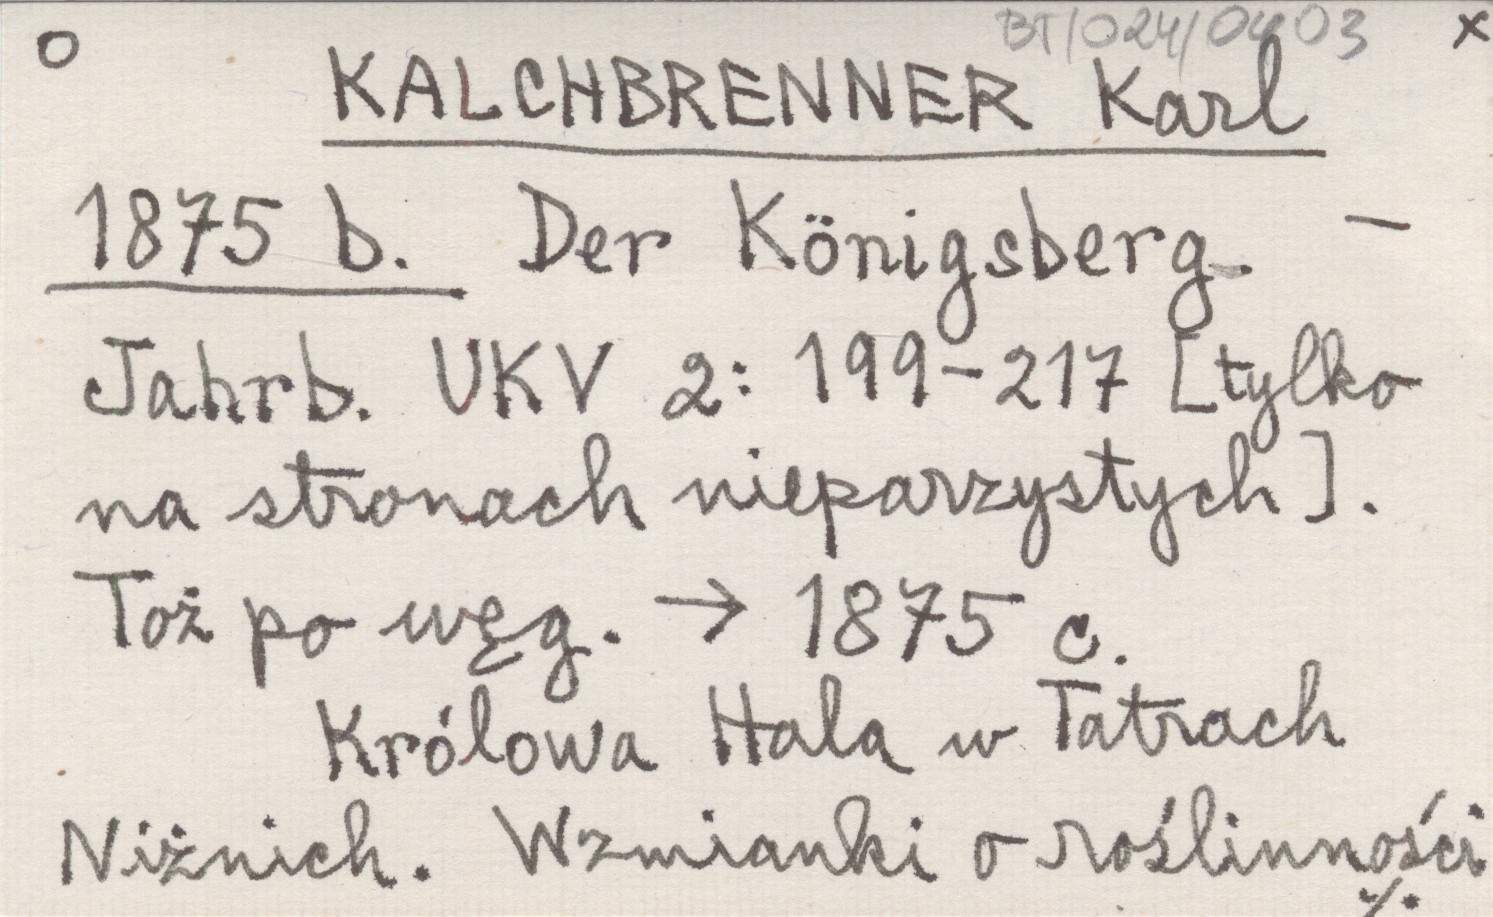 O BT/024/0403 x
KALCHBRENNER Karl
1875 b. Der Königsberg. —
Jahrb. UKV 2: 199-217 [tylko
na stronach nieparzystych].
Toż po węg. → 1875 c.
Królowa Hala w Tatrach
Niżnich. Wzmianki o roślinności
./.